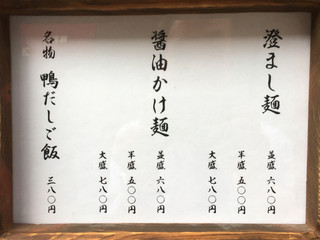 澄まし麺
並盛 六八〇円
半盛 五〇〇円
大盛 七八〇円
醤油かけ麺
並盛 六八〇円
半盛 五〇〇円
大盛 七八〇円
名物 鴨だしご飯 三八〇円